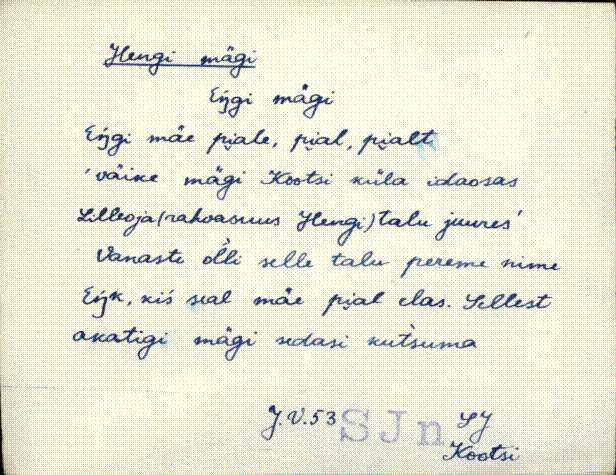 Hengi mägi
Eŋgi mägi
Eŋgi mäe pi̯ale, pi̯al, pi̯alt,
'väike mägi Kootsi küla idaosas
Lilleoja (rahvasuus Hengi) talu juures'
Vanaste òlli selle talu pereme nime
Eŋk, kiś seal mäe pi̯al elas. Sellest
akatigi mägi sedasi kut̀suma
J.V.53 SJn SJ
Kootsi